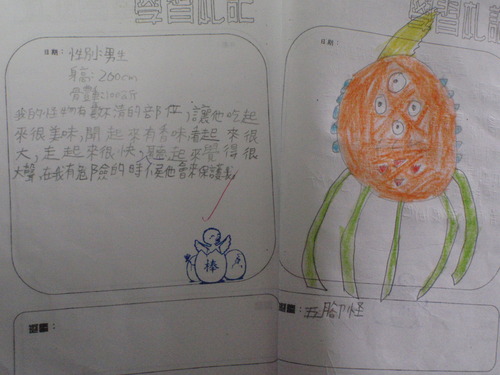 學習札記
學習札記
日期：
性別：男生
身高：200cm
體重：100公斤
我的怪物有數不清的部位，讓他吃起
來很美味，聞起來有香味，看起來很
大，走起來很快，聽起來覺得很
大聲，在我有危險的時候他會來保護我。
棒
遊戲：
日期：
五腳怪